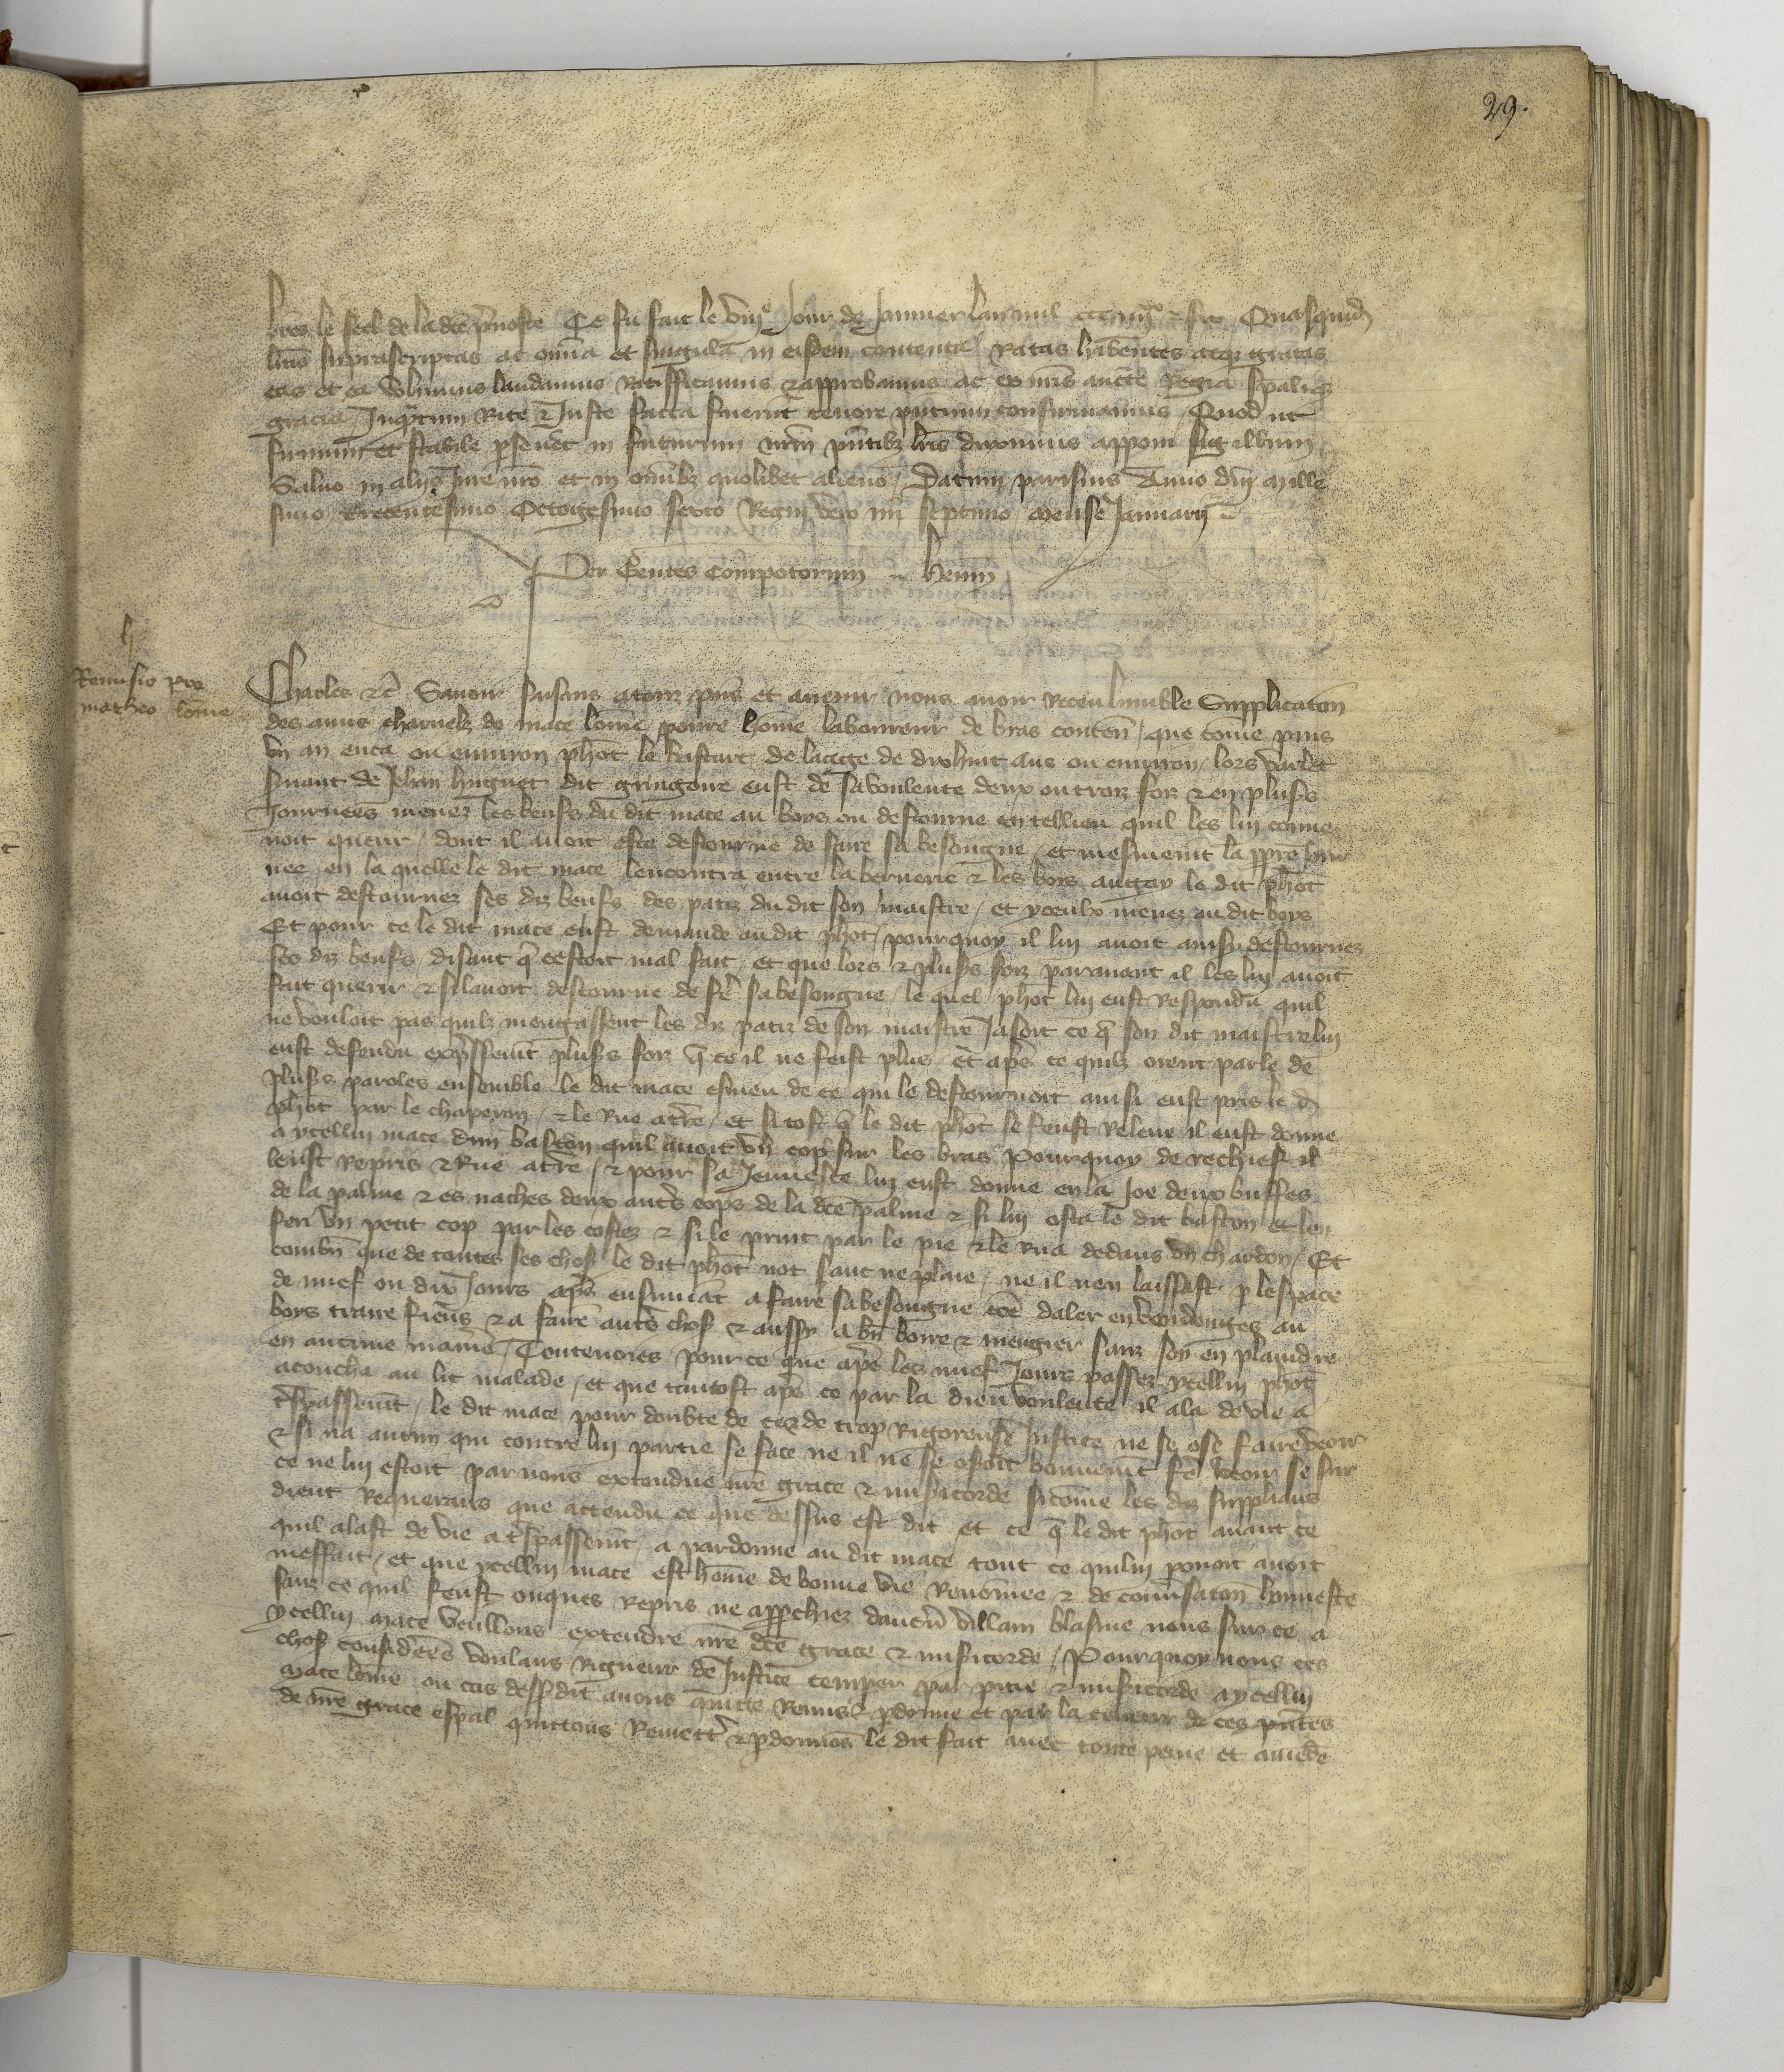 29.
lres le seel de la dce prevoste Ce fu fait le viije Jour de Janvier lan mil ccc iiijxx & six Quasquid
lras suprascriptas ac omnia et singula in eisdem contenta Ratas habentes atque gratas
eas et ea volumus laudamus Ratifficamus & approbamus ac eo nris aucte Regia spalique
gracia / Inqntum Rite & Juste facta fuerint tenore pntium confirmamus / Quod ut
firmum et stabile perseveret in futurum nrum pntibz lris duximus apponi sigillum
Salvo in alijs Jure nro et in omibz quolibet alieno / Datum parisius Anno dni Mille
simo Trecentesimo Octogesimo sexto Regni vero nri septimo mense Januarij
Per Gentes Compotorum Henin
Remissio pro
matheo lome
Charles &c Savoir faisons a touz pns et avenir nous avoir Receu lumble Supplicaton
des amis charnelz de mace lome povre home laboureur de bras conten / que come puis
un an enca ou environ phot le bastart de laage de dixhuit ans ou environ / lors varlet
suiant de Jehan huguet dit gringoue eust de sa voulente deux ou trois foiz & en plusrs
Journees menez les beufs du dit mace au boys ou destourne en tel lieu quil les lui conve
noit querir / dont il avoit este destourne de faire sa besongne / et mesmemt la ppre Jour
nee en la quelle le dit mace lencontra entre la bernerie & les bois augay le dit phot
avoit destournez ses diz beufs des patiz du dit son maistre / et yceulx menez au dit boys
Et pour ce le dit mace eust demande au dit phot / pourquoy il lui avoit ainsi destournez
ses diz beufs / disant q cestoit mal fait et que lors & plusrs foiz paravant il les lui avoit
fait querir & si lavoit destourne de fe sa besongne / le quel phot lui eust Respondu quil
ne vouloit pas quilz mengassent les diz patiz de son maistre Jasoit ce q son dit maistre lui
eust defendu expssemt plusrs foiz q ce il ne feist plus / et aps ce quilz orent parle de
plusrs paroles ensemble le dit mace esmeu de ce qui le destournoit ainsi eust pris le d
phot par le chaperon / & le Rue a tre / et si tost q le dit phot se feust Releve il eust donne
a ycellui mace dun baston quil avoit un cop sur les bras Pourquoy de rechief il
leust Repris & Rue a tre / & pour sa Jeunesce lui eust donne en la Joe deux buffes
de la palme & es naches deux autrs cops de la dce palme & si lui osta le dit baston et len
feri un petit cop par les costez & si le print par le pie & le Rua dedans un chardon / Et
combn que de toutes ses chos le dit phot not sanc ne plaie / ne il nen laissast p lespace
de nuef ou dix Jours aps ensuivat a faire sa besongne coe daler en vendenges au
boys traire fiens & a faire autrs chos & aussy a bn boire & mengier sanz soy en plaindre
en aucune maniere / Toutevoies pour ce que aps les nuef Jours passez ycellui phot
acoucha au lit malade / et que tantost aps ce par la dieu voulente il ala de vie a
trespassemt / le dit mace pour doubte de cez de trop Rigoreuse Justice ne se ose faire veoir
& si na aucun qui contre lui partie se face ne il ne se osoit bonnemt fe veoir se sur
ce ne lui estoit par nous extendue nre grace & misicorde sicome les diz supplians
dient Requerans que attendu ce que dessus est dit et ce q le dit phot avant ce
quil alast de vie a trespassemt / a pardonne au dit mace tout ce quil lui povoit avoir
meffait / et que ycellui mace est home de bonne vie Renommee & de conversaton honneste
sanz ce quil feust onques repris ne approuchiez daucun villain blasme nous sur ce a
ycellui mace vcullons extendre nre dce grace & misicorde / Pourquoy nous ces
chos considerees voulans Rigueur de Justice temper par pitie & misicorde a ycellui
mace lome ou cas dessusdit avons quitte Remis & pdonne et par la teneur de ces pntes
de nre grace espal quittons Remett & pdonnos le dit fait avec toute peine et amede